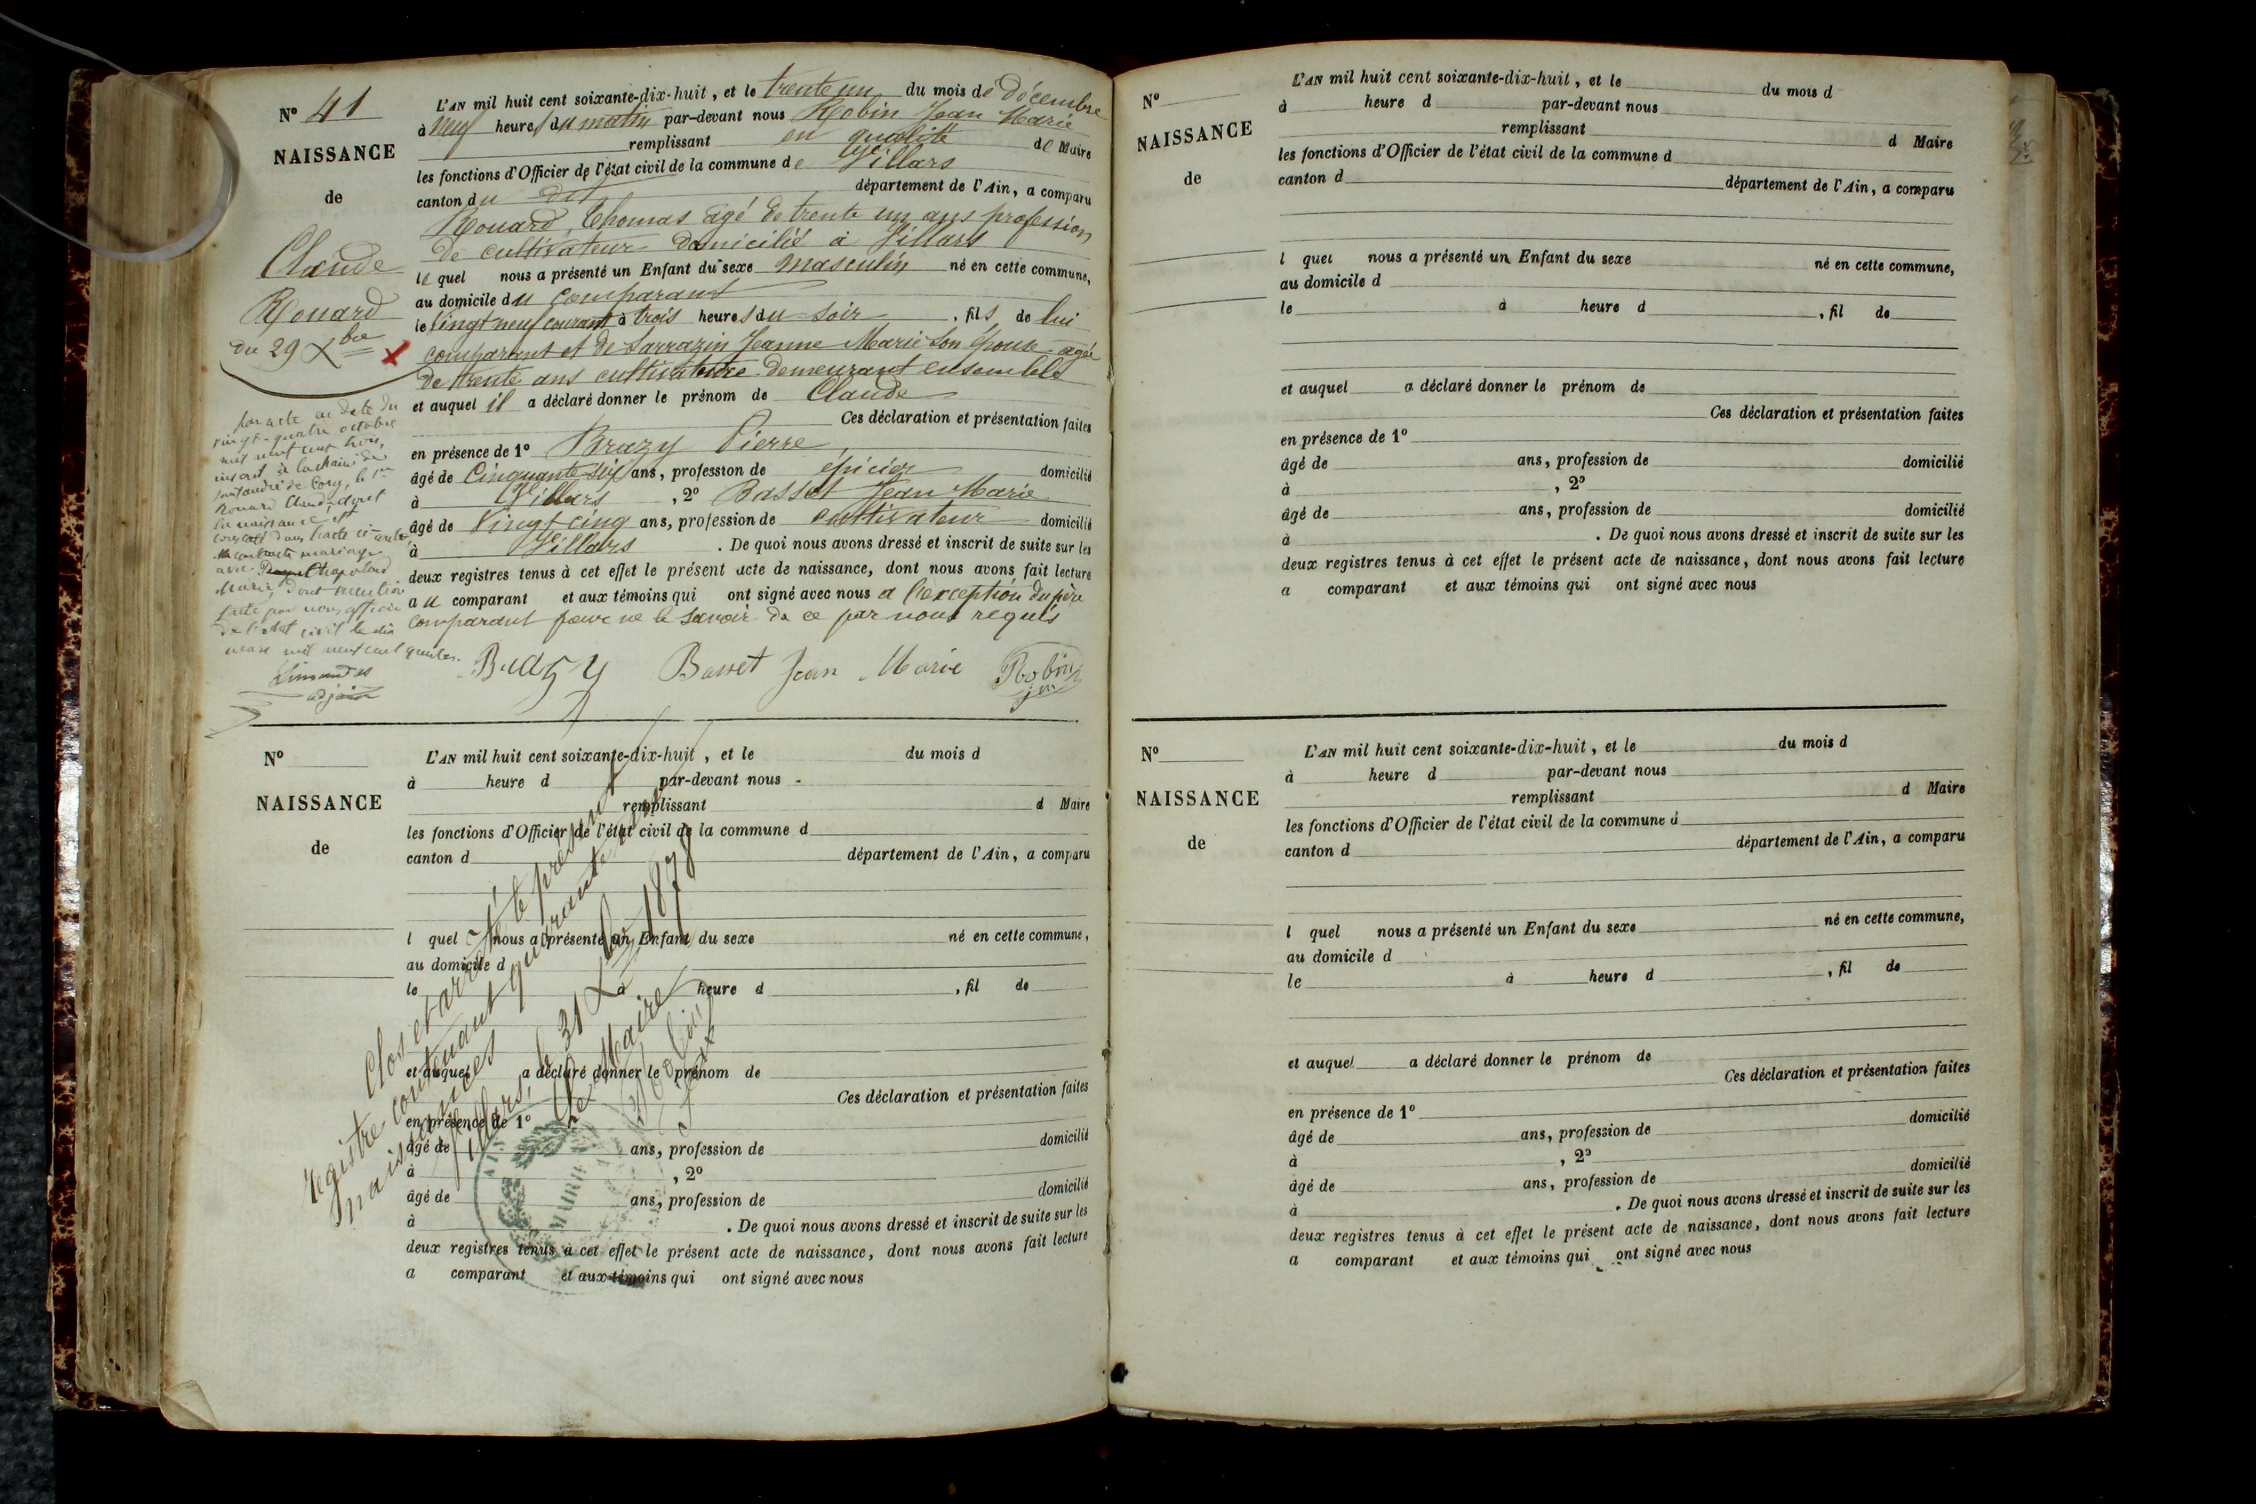 N° 41
NAISSANCE
de
Claude
Rouard
du 29 Xbre
L'AN mil huit cent soixante-dix-huit, et le trente un du mois de décembre
à neuf heures du matin par-devant nous Robin Jean Marie
remplissant en qualité de Maire
les fonctions d'Officier de l'état civil de la commune de Villars
canton du dit département de l'Ain, a comparu
Rouard, Thomas âgé de trente un ans profession
de cultivateur domicilié à Villars
le quel nous a présenté un Enfant du sexe masculin né en cette commune,
au domicile du comparant
le vingt neuf courant à trois heures du soir, fils de lui
comparant et de Sarrazin Jeanne Marie son épouse agée
de trente ans cultivatrice demeurant ensemble
et auquel il a déclaré donner le prénom de Claude
Ces déclaration et présentation faites
en présence de 1° Brazy Pierre
âgé de Cinquante six ans, profession de épicier domicilié
à Villars, 2° Basset Jean Marie
âgé de Vingt cinq ans, profession de cultivateur domicilié
à Villars. De quoi nous avons dressé et inscrit de suite sur les
deux registres tenus à cet effet le présent acte de naissance, dont nous avons fait lecture
au comparant et aux témoins qui ont signé avec nous a l'exception du père
comparant pour ne le savoir de ce par nous requis
Brazy Basset Jean Marie Robin
par acte en date du
vingt-quatre octobre
mil neuf cent trois,
inscrit à la mairie de
Saint André de Corcy, le sr
Rouard Claude, dont
la naissance est
constatée dans l'acte ci-contre,
a contracté mariage
avec
Marie, dont mention
faite par nous, officier
de l'état civil le dix
mars mil neuf cent quinze.
adjoint
N°
NAISSANCE
de
L'AN mil huit cent soixante-dix-huit, et le du mois d
à heure d par-devant nous
remplissant d Maire
les fonctions d'Officier de l'état civil de la commune d
canton d département de l'Ain, a comparu
l quel nous a présenté un Enfant du sexe né en cette commune,
au domicile d
le à heure d , fil de
et auquel a déclaré donner le prénom de
Ces déclaration et présentation faites
en présence de 1°
âgé de ans, profession de domicilié
à , 2°
âgé de ans, profession de domicilié
à . De quoi nous avons dressé et inscrit de suite sur les
deux registres tenus à cet effet le présent acte de naissance, dont nous avons fait lecture
a comparant et aux témoins qui ont signé avec nous
Clos et arrêté le présent
registre contenant quarante une
naissances
Villars, le 31 Xbre 1878
Le Maire
Robin
MAIRIE
AIN
N°
NAISSANCE
de
L'AN mil huit cent soixante-dix-huit, et le du mois d
à heure d par-devant nous
remplissant d Maire
les fonctions d'Officier de l'état civil de la commune d
canton d département de l'Ain, a comparu
l quel nous a présenté un Enfant du sexe né en cette commune,
au domicile d
le à heure d , fil de
et auquel a déclaré donner le prénom de
Ces déclaration et présentation faites
en présence de 1°
âgé de ans, profession de domicilié
à , 2°
âgé de ans, profession de domicilié
à . De quoi nous avons dressé et inscrit de suite sur les
deux registres tenus à cet effet le présent acte de naissance, dont nous avons fait lecture
a comparant et aux témoins qui ont signé avec nous
N°
NAISSANCE
de
L'AN mil huit cent soixante-dix-huit, et le du mois d
à heure d par-devant nous
remplissant d Maire
les fonctions d'Officier de l'état civil de la commune d
canton d département de l'Ain, a comparu
l quel nous a présenté un Enfant du sexe né en cette commune,
au domicile d
le à heure d , fil de
et auquel a déclaré donner le prénom de
Ces déclaration et présentation faites
en présence de 1°
âgé de ans, profession de domicilié
à , 2°
âgé de ans, profession de domicilié
à . De quoi nous avons dressé et inscrit de suite sur les
deux registres tenus à cet effet le présent acte de naissance, dont nous avons fait lecture
a comparant et aux témoins qui ont signé avec nous